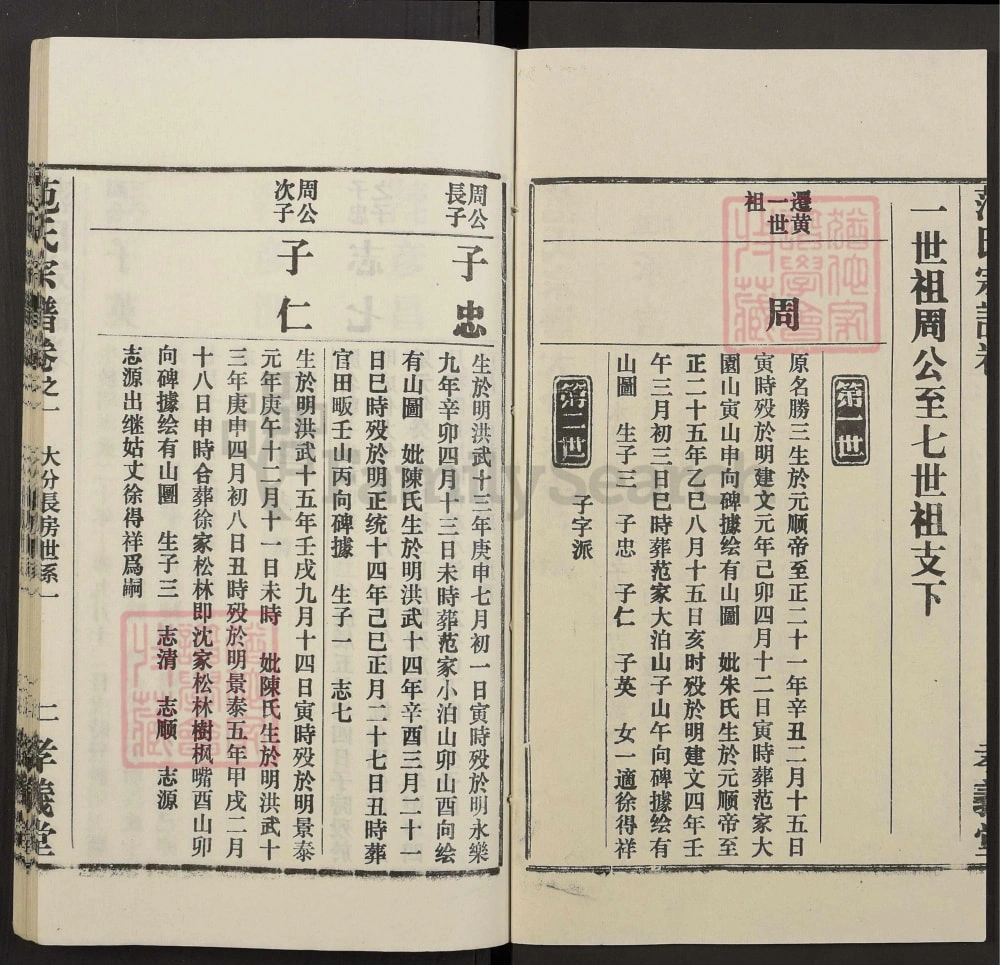 范氏宗譜卷
孝義堂
一世祖周公至七世祖支下
第一世
遷黄
一世
祖
周
原名勝三生於元顺帝至正二十一年辛丑二月十五日
寅時殁於明建文元年己卯四月十二日寅時葬范家大
園山寅山申向碑據绘有山圖 妣朱氏生於元顺帝至
正二十五年乙巳八月十五日亥时殁於明建文四年壬
午三月初三日巳時葬范家大泊山子山午向碑據绘有
山圖 生子三 子忠 子仁 子英 女一適徐得祥
第二世
子字派
周公
長子
子忠
生於明洪武十三年庚申七月初一日寅時殁於明永樂
九年辛卯四月十三日未時葬范家小泊山卯山酉向绘
有山圖 妣陳氏生於明洪武十四年辛酉三月二十一
日巳時殁於明正统十四年己巳正月二十七日丑時葬
官田畈壬山丙向碑據 生子一 志七
周公
次子
子仁
生於明洪武十五年壬戌九月十四日寅時殁於明景泰
元年庚午十二月十一日未時 妣陳氏生於明洪武十
三年庚申四月初八日丑時殁於明景泰五年甲戌二月
十八日申時合葬徐家松林即沈家松林樹枫嘴酉山卯
向碑據绘有山圖 生子三 志清 志顺 志源
志源出继姑丈徐得祥爲嗣
范氏宗譜卷之一
大分長房世系一
二
孝義堂
FamilySearch